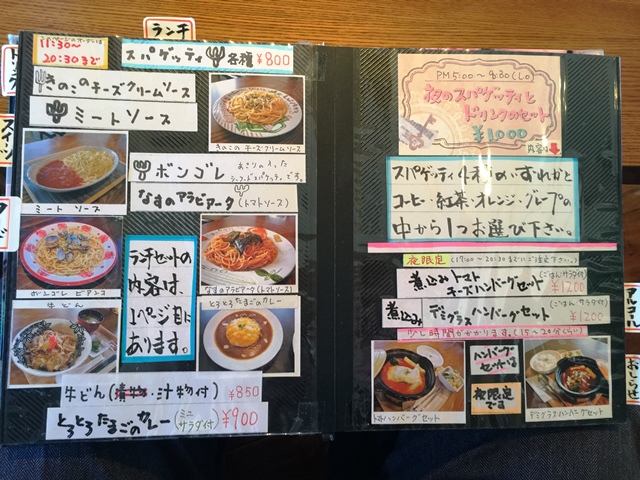 ランチ
11:30〜
20:30まで
スパゲッティ 各種 ¥800
きのこのチーズクリームソース
ミートソース
きのこの チーズクリームソース
ボンゴレ
なすのアラビアータ(トマトソース)
ミートソース
ボンゴレ ビアンコ
なすのアラビアータ(トマトソース)
牛どん
とろとろたまごのカレー
ランチセットの
内容は、
1ページ目に
あります。
牛どん(漬物・汁物付) ¥850
とろとろたまごのカレー(ミニサラダ付) ¥900
PM5:00〜8:30(LO)
夜のスパゲッティと
ドリンクのセット
¥1000
内容は
スパゲッティ4種のいずれかと
コーヒー・紅茶・オレンジ・グレープの
中から1つお選び下さい。
夜限定(17:00〜20:30までにご注文下さい。)
煮込みトマト
チーズハンバーグセット(ごはん・サラダ付)
¥1200
煮込みデミグラスハンバーグセット(ごはん サラダ付)
¥1200
少し時間がかかります。(15〜20分くらい)
ハンバーグ
セットは
夜限定
です
トマトハンバーグセット
デミグラスハンバーグセット